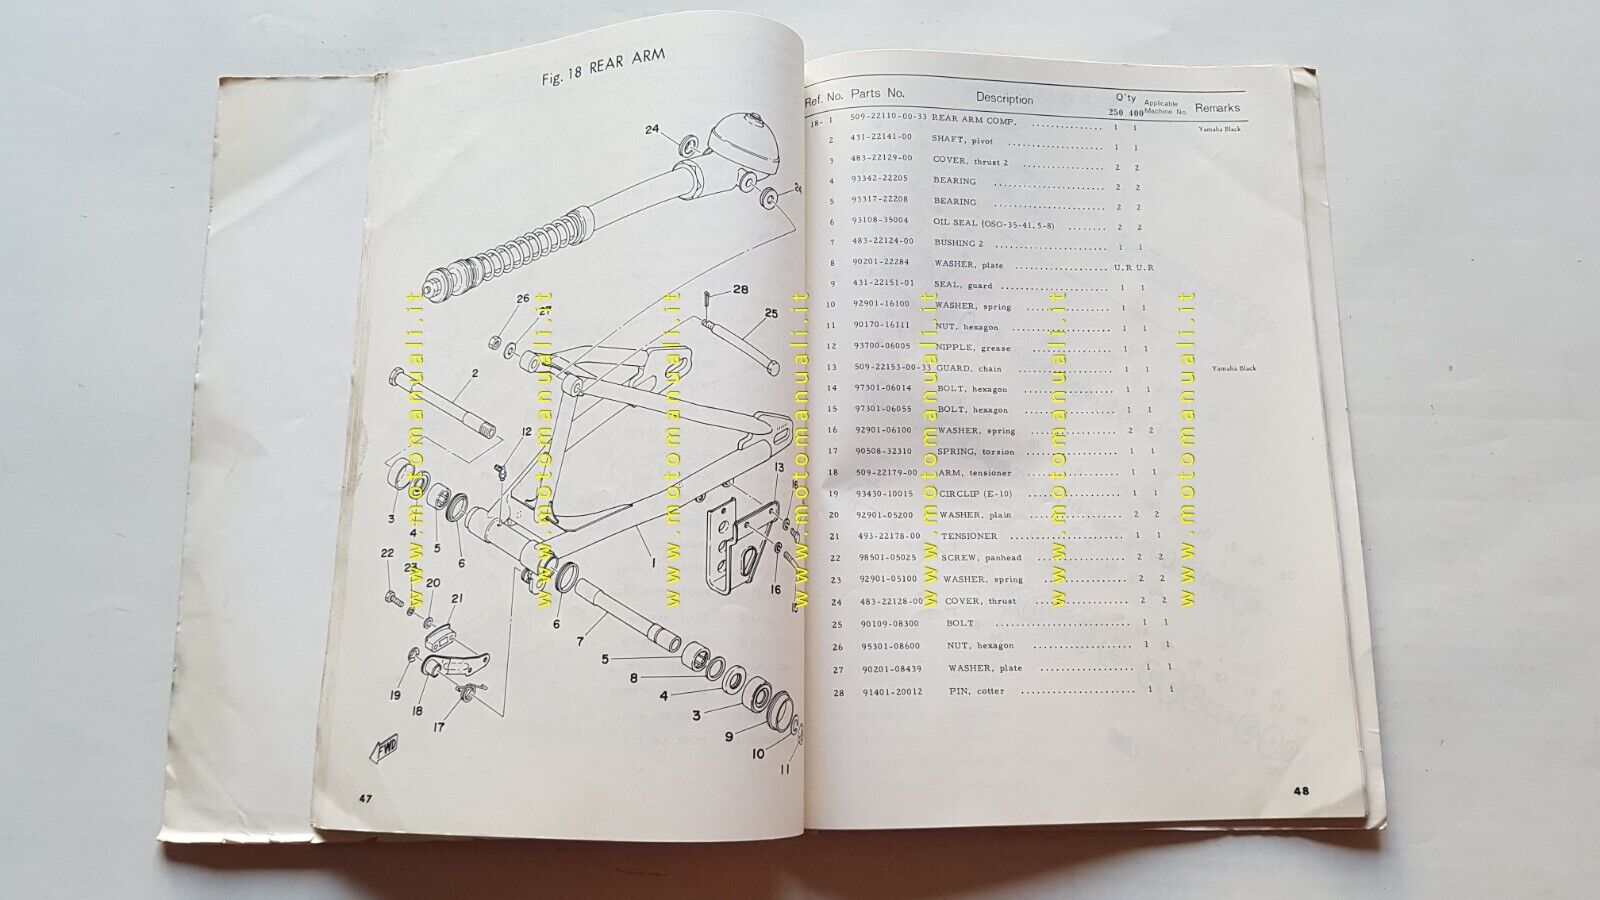 Fig. 18 REAR ARM
24
24
28
26
27
25
2
12
13
18
3
4
5
6
1
16
15
22
23
20
21
6
7
5
8
4
3
19
18
17
9
10
11
FWD
47
Ref. No. Parts No. Description Q'ty Applicable Machine No. Remarks
250 400
18- 1 509-22110-00-33 REAR ARM COMP. .............. 1 1 Yamaha Black
2 431-22141-00 SHAFT, pivot .................. 1 1
3 483-22129-00 COVER, thrust 2 ................ 2 2
4 93342-22205 BEARING ...................... 2 2
5 93317-22208 BEARING ...................... 2 2
6 93108-35004 OIL SEAL (OSO-35-41.5-8) ........ 2 2
7 483-22124-00 BUSHING 2 ...................... 1 1
8 90201-22284 WASHER, plate .................. U.R U.R
9 431-22151-01 SEAL, guard ...................... 1 1
10 92901-16100 WASHER, spring .................. 1 1
11 90170-16111 NUT, hexagon .................... 1 1
12 93700-06005 NIPPLE, grease .................. 1 1
13 509-22153-00-33 GUARD, chain .................... 1 1 Yamaha Black
14 97301-06014 BOLT, hexagon .................. 1 1
15 97301-06055 BOLT, hexagon .................. 1 1
16 92901-06100 WASHER, spring .................. 2 2
17 90508-32310 SPRING, torsion .................. 1 1
18 509-22179-00 ARM, tensioner .................. 1 1
19 93430-10015 CIRCLIP (E-10) .................. 1 1
20 92901-05200 WASHER, plain .................. 2 2
21 493-22178-00 TENSIONER .................... 1 1
22 98501-05025 SCREW, panhead ................ 2 2
23 92901-05100 WASHER, spring ................ 2 2
24 483-22128-00 COVER, thrust .................. 2 2
25 90109-08300 BOLT .......................... 1 1
26 95301-08600 NUT, hexagon .................... 1 1
27 90201-08439 WASHER, plate .................. 1 1
28 91401-20012 PIN, cotter ...................... 1 1
48
www.motomanuali.it
www.motomanuali.it
www.motomanuali.it
www.motomanuali.it
www.motomanuali.it
www.motomanuali.it
www.motomanuali.it